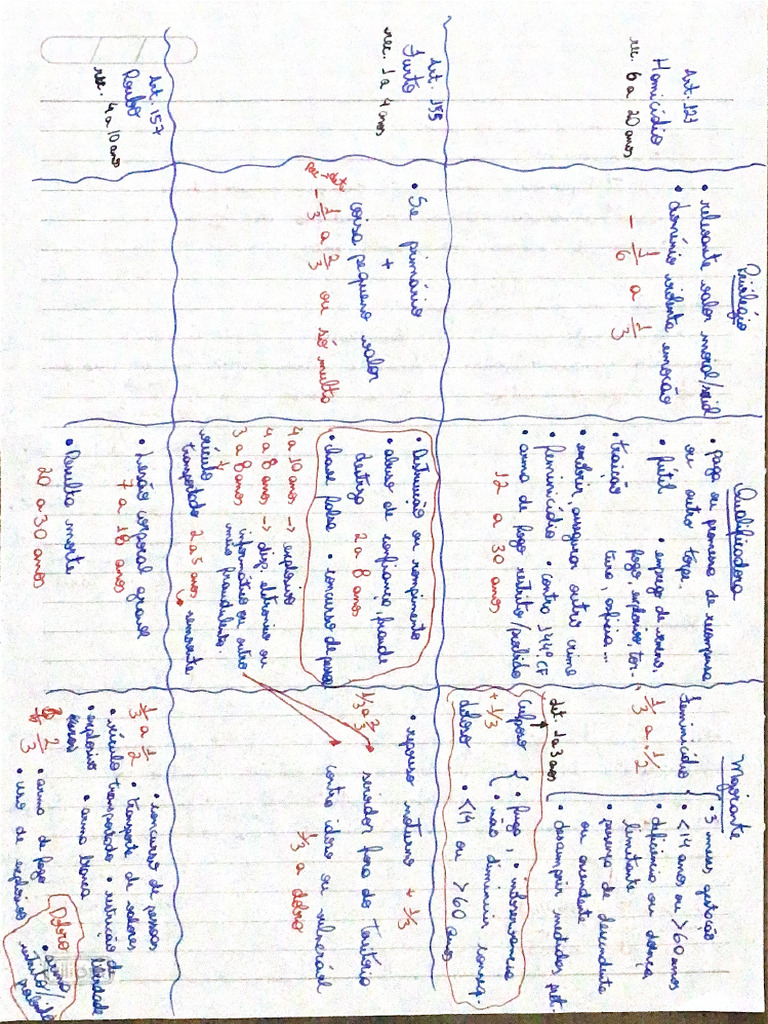 Privilégio
Qualificadora
Majorante
Art. 121
Homicídio
rec. 6 a 20 anos
• relevante valor moral/social
• domínio violenta emoção
- 1/6 a 1/3
• paga ou promessa de recompensa
ou outro torpe.
• fútil • emprego de veneno,
fogo, explosivo, tor-
• traição tura, asfixia...
• encobrir, assegurar outro crime
• feminicídio • contra 144 CF
• arma de fogo restrito/proibido
12 a 30 anos
feminicídio
1/3 a 1/2
• 3 meses gestação
• <14 anos ou >60 anos
• deficiência ou doença
limitante
• presença de descendente
ou ascendente
• descumprir medidas prot.
det. 1 a 3 anos
Culposo { • fuga, • inobservancia
+ 1/3 • não diminuir conseq.
doloso • <14 ou >60 anos
Art. 155
Furto
rec. 1 a 4 anos
• Se primário
+
coisa pequeno valor
rec → det
- 1/3 a 2/3 ou só multa
• Destruição ou rompimento
• abuso de confiança, fraude
destreza 2 a 8 anos
• chave falsa • concurso de pessoas
4 a 10 anos → explosivo
4 a 8 anos → disp. eletronico ou
3 a 8 anos informático ou outro
↓ meio fraudulento
veículo
transportado 2 a 5 anos → semovente
• repouso noturno + 1/3
1/3 a 2/3 servidor fora do território
contra idoso ou vulnerável
1/3 a dobro
Art. 157
Roubo
rec. 4 a 10 anos
• Lesão corporal grave
7 a 18 anos
• Resulta morte
20 a 30 anos
1/3 a 1/2 • concurso de pessoas
• transporte de valores
• veículo transportado • restrição de
liberdade
• explosivo • arma branca
2/3 • arma de fogo
• uso de explosivo
Dobro
• arma
restrito/
proibido